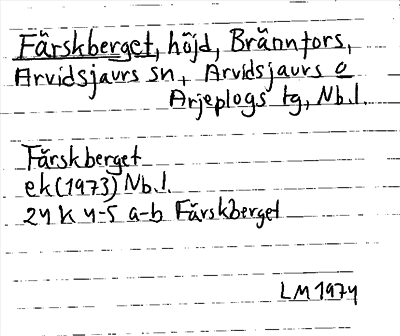 Färskberget, höjd, Brännfors,
Arvidsjaurs sn, Arvidsjaurs o
Arjeplogs tg, Nb.l.
Färskberget
ek(1973) Nb.l.
24 K 4-5 a-b Färskberget
LM 1974